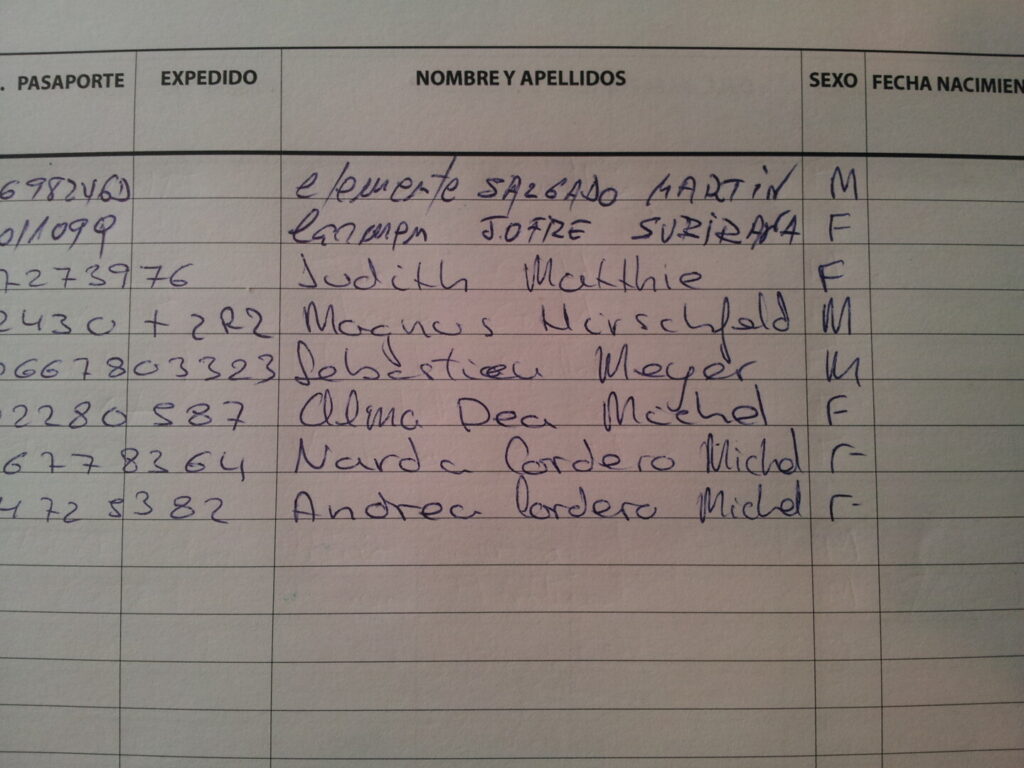 . PASAPORTE EXPEDIDO NOMBRE Y APELLIDOS SEXO FECHA NACIMIEN
6982460 clemente SALGADO MARTIN M
011099 carmen JOFRE SURIRANA F
7273976 Judith Matthie F
2430 + 2R2 Magnus Hirschfeld M
0667803323 Sebastien Meyer M
2280 587 Alma Dea Michel F
6778364 Narda Cordero Michel F
4725382 Andrea Cordero Michel F